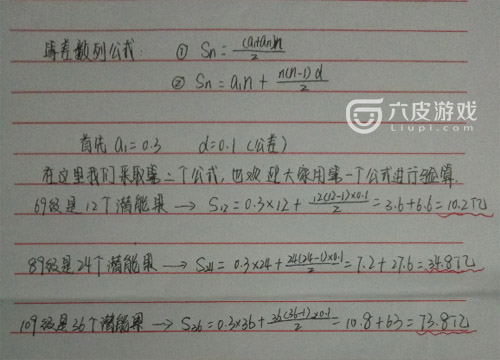 等差数列公式: ① Sn = (a₁+an)n/2
② Sn = a₁n + n(n-1)d/2
六皮游戏
Liupi.com
首先 a₁=0.3 d=0.1 (公差)
在这里我们采取第二个公式,也欢迎大家用第一个公式进行验算.
69级是12个潜能果 → S₁₂ = 0.3×12 + 12(12-1)×0.1/2 = 3.6+6.6 = 10.2亿
89级是24个潜能果 → S₂₄ = 0.3×24 + 24(24-1)×0.1/2 = 7.2+27.6 = 34.8亿
109级是36个潜能果 → S₃₆ = 0.3×36 + 36(36-1)×0.1/2 = 10.8+63 = 73.8亿